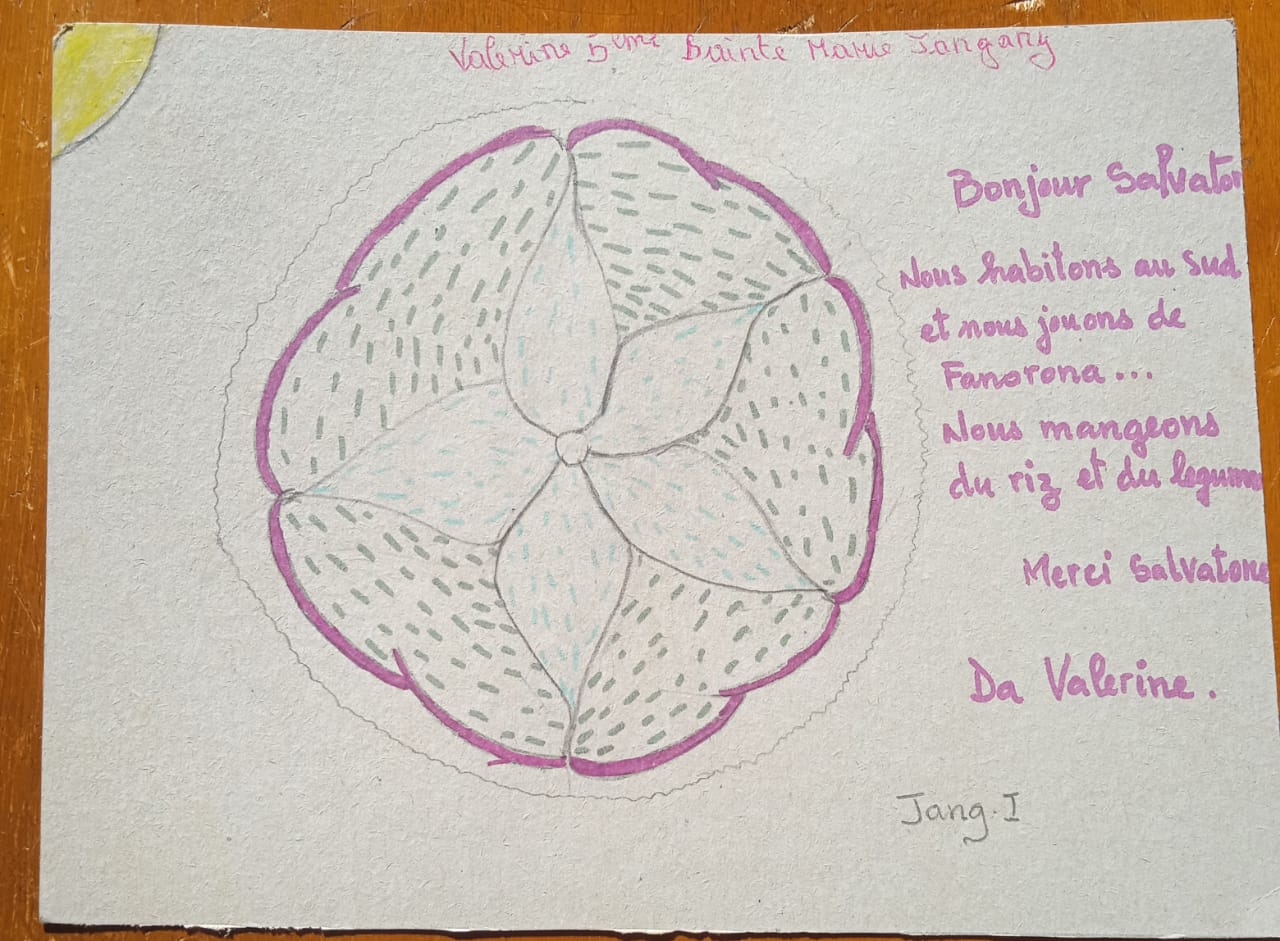 Valerine 5ème Sainte Marie Jangany
Bonjour Salvator
Nous habitons au Sud
et nous jouons de
Fanorona...
Nous mangeons
du riz et du legum
Merci Salvatore
Da Valerine.
Jang.I